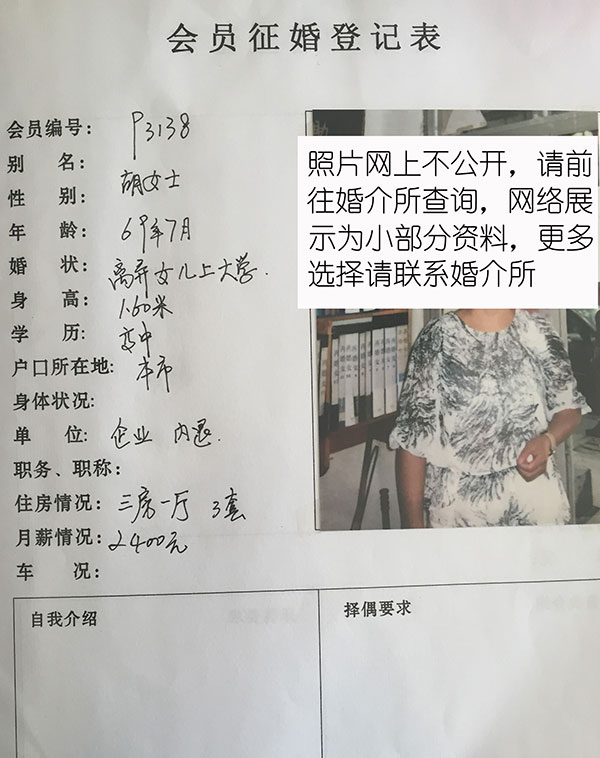 会员征婚登记表
会员编号: P3138
别 名: 胡女士
性 别:
年 龄: 69年7月
婚 状: 离异女儿上大学.
身 高: 1.60米
学 历: 高中
户口所在地: 本市
身体状况:
单 位: 企业 内退.
职务、职称:
住房情况: 三房一厅 3套
月薪情况: 2400元
车 况:
照片网上不公开，请前
往婚介所查询，网络展
示为小部分资料，更多
选择请联系婚介所
自我介绍
择偶要求